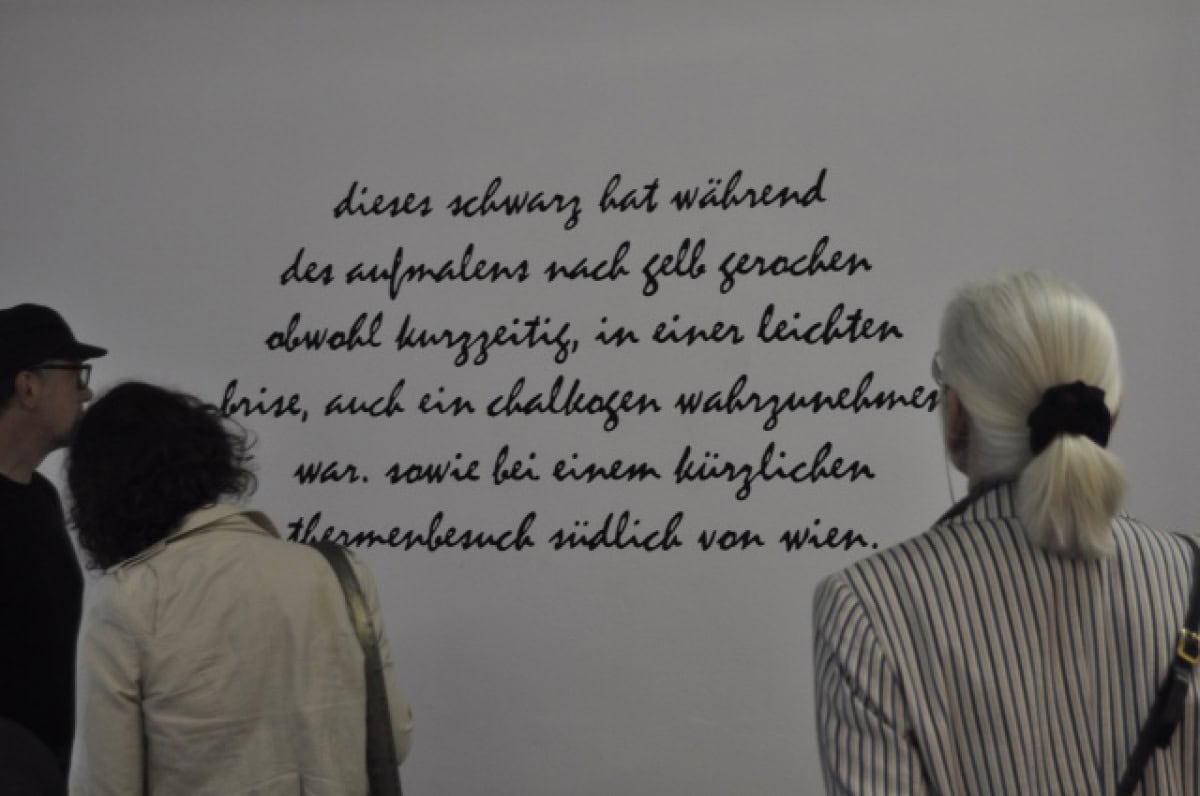 dieses schwarz hat während
des aufmalens nach gelb gerochen
obwohl kurzzeitig, in einer leichten
brise, auch ein chalkogen wahrzunehmen
war. sowie bei einem kürzlichen
thermenbesuch südlich von wien.